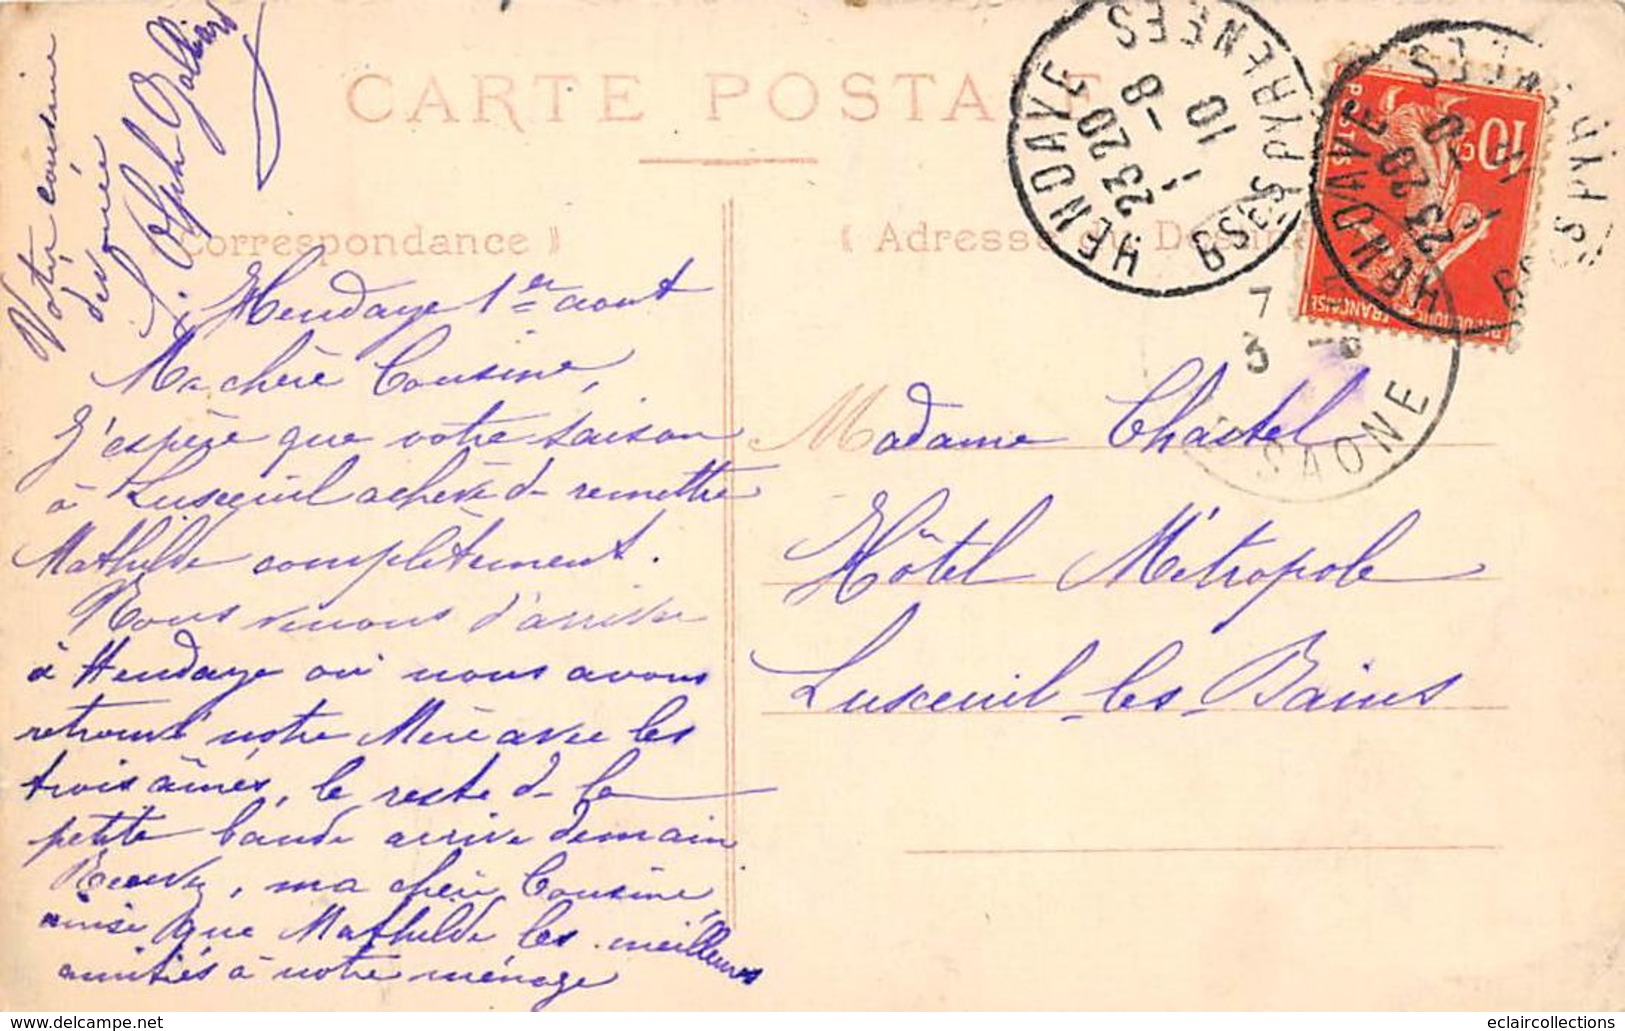 CARTE POSTALE
Correspondance
Adresse du Destin
Hendaye 1er aout
Ma chère Cousine,
J'espère que votre saison
à Luxeuil achève de remettre
Mathilde complètement.
Nous venons d'arriver
à Hendaye où nous avons
retrouvé notre Mère avec les
trois aînés, le reste de la
petite bande arrive demain
Recevez, ma chère Cousine,
ainsi que Mathilde les meilleures
amitiés de notre ménage
Votre cousine
dévouée
Madame Chastel
Hôtel Métropole
Luxeuil-les-Bains
HENDAYE
23 20
1 - 8
10
BSES PYRENEES
HENDAYE
23 20
BSES PYRENEES
10c
POSTES
REPUBLIQUE FRANÇAISE
7
3 - 8
SAONE
www.delcampe.net
eclaircollections